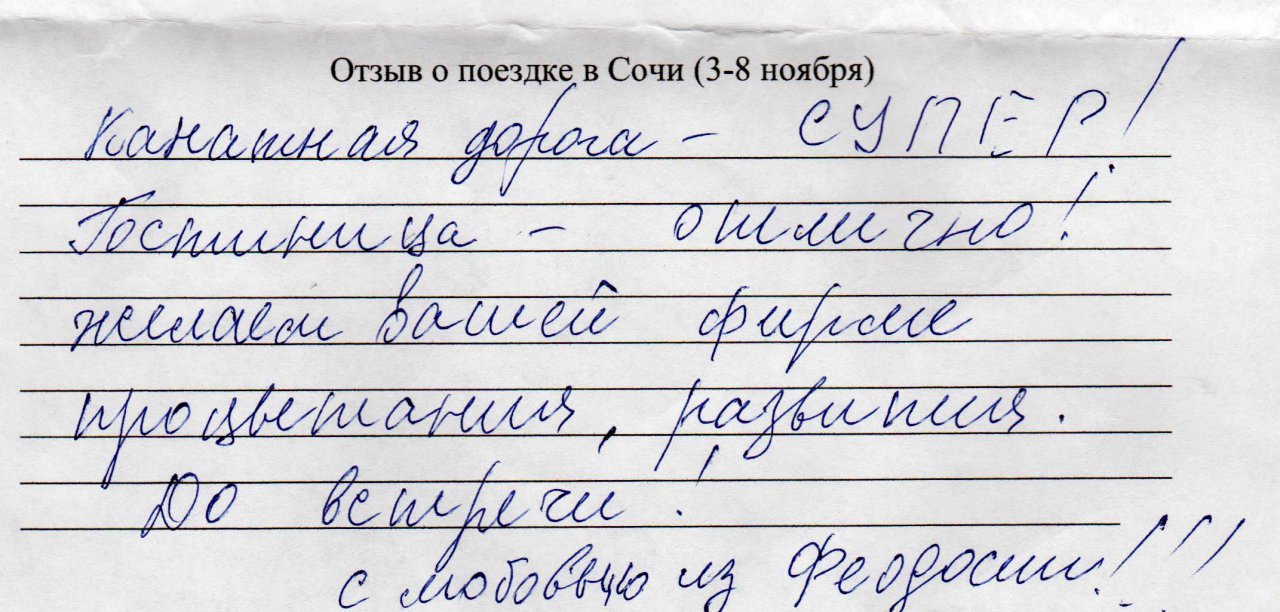 Отзыв о поездке в Сочи (3-8 ноября)
Канатная дорога - СУПЕР!
Гостиница - отлично!
желаем вашей фирме
процветания, развития.
До встречи!
с любовью из Феодосии!!!